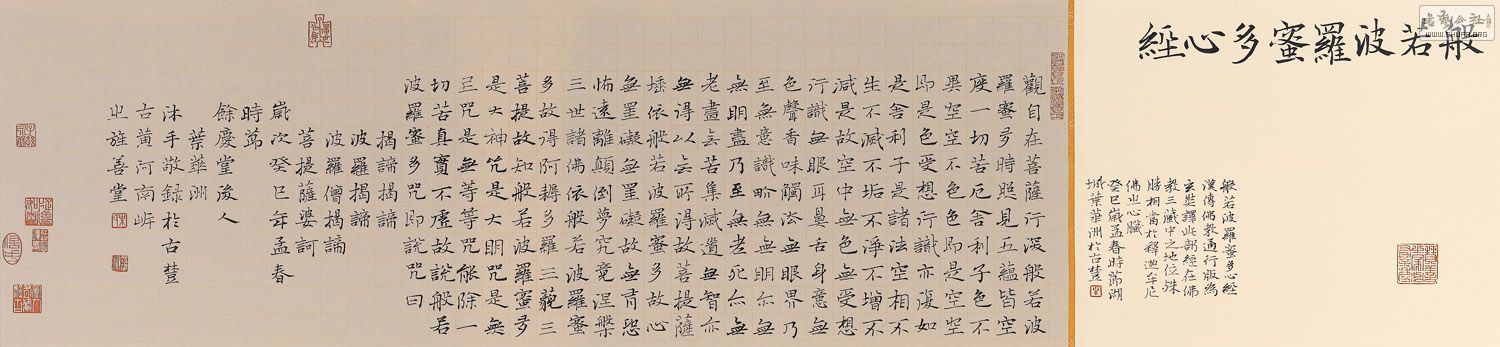 般若波羅蜜多心經
般若波羅蜜多心經
漢傳佛教通行版為
玄奘譯此部經在佛
教三藏中之地位殊
勝相當於釋迦牟尼
佛之心臟
癸巳歲孟春時節湖
城葉華洲於古楚
觀自在菩薩行深般若波
羅蜜多時照見五蘊皆空
度一切苦厄舍利子色不
異空空不色色即是空空
即是色受想行識亦復如
是舍利子是諸法空相不
生不滅不垢不淨不增不
減是故空中無色無受想
行識無眼耳鼻舌身意無
色聲香味觸法無眼界乃
至無意識界無無明亦無
無明盡乃至無老死亦無
老盡无苦集滅道無智亦
無得以无所得故菩提薩
埵依般若波羅蜜多故心
無罣礙無罣礙故無有恐
怖遠離顛倒夢究竟涅槃
三世諸佛依般若波羅蜜
多故得阿耨多羅三藐三
菩提故知般若波羅蜜多
是大神咒是大明咒是無
上咒是無等等咒能除一
切苦真實不虛故說般若
波羅蜜多咒即說咒曰
揭諦揭諦
波羅揭諦
波羅僧揭諦
菩提薩婆訶
歲次癸巳年孟春
時節
餘慶堂後人
葉華洲
沐手敬録於古楚
古黄河南岸
之旌善堂
WWW.SHUFA.ORG